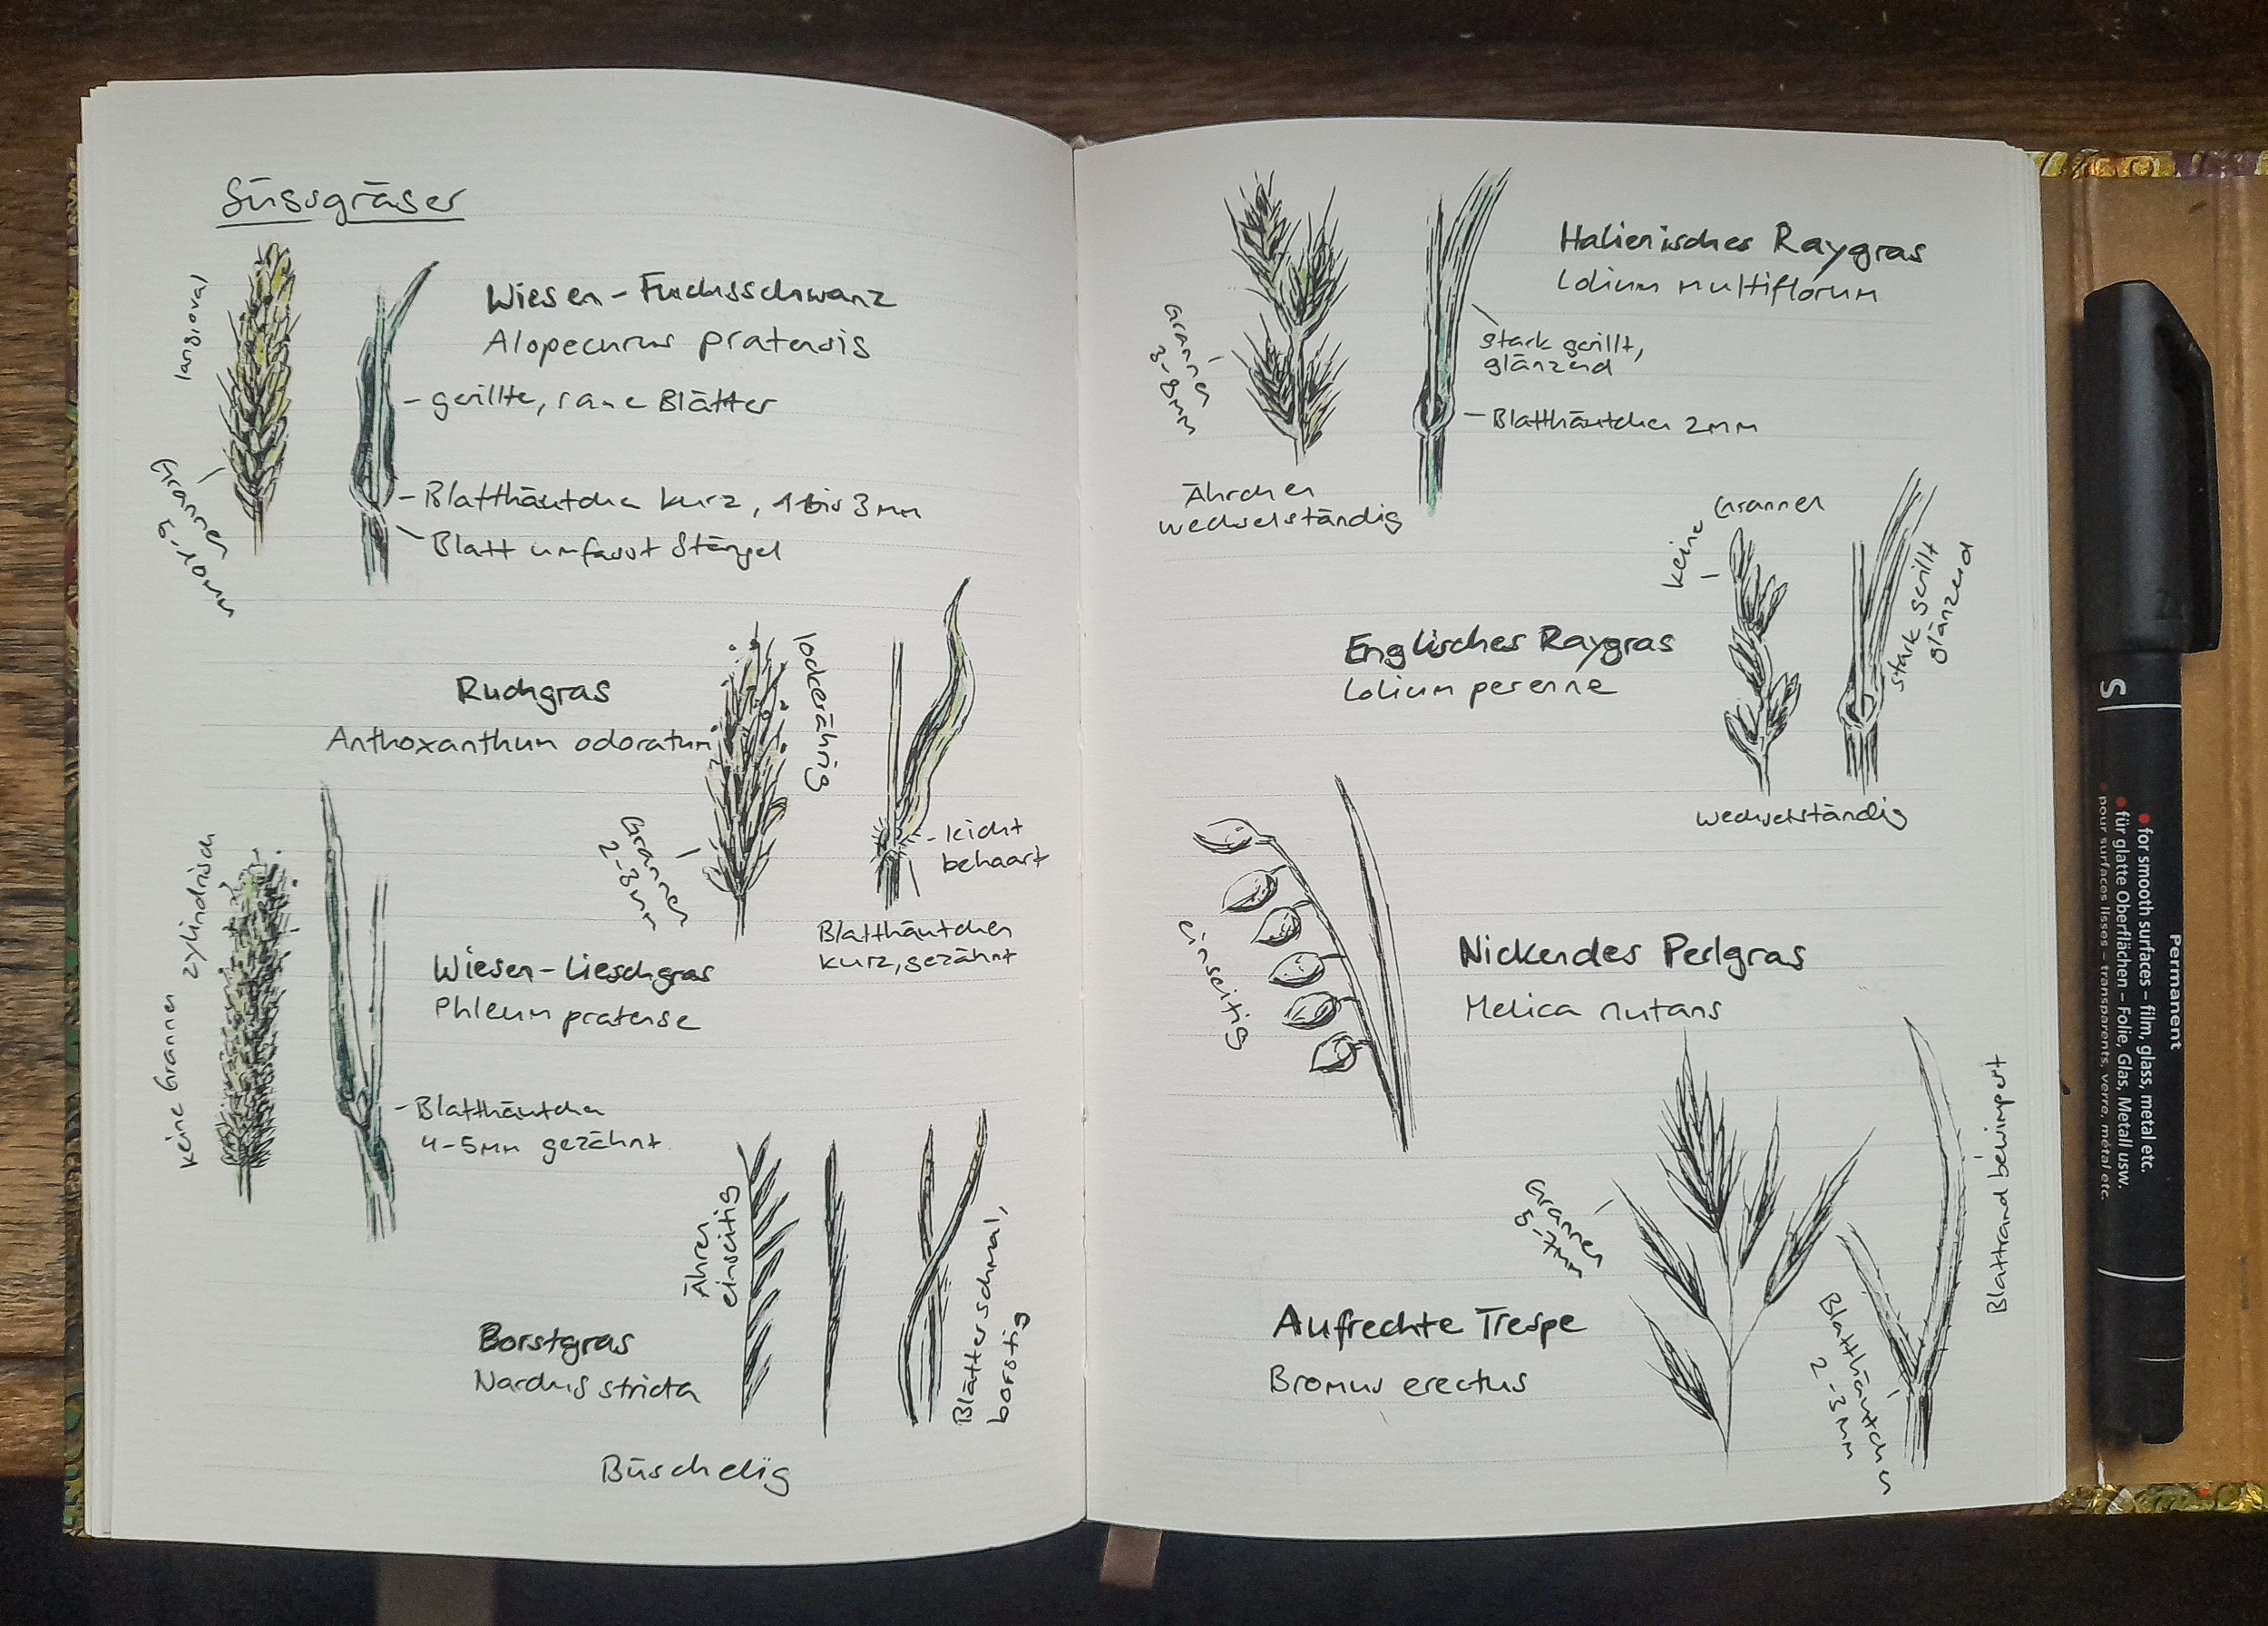 Süssgräser
langoval
Grannen
5-10mm
Wiesen-Fuchsschwanz
Alopecurus pratensis
gerillte, raue Blätter
Blatthäutchen kurz, 1 bis 3mm
Blatt umfasst Stängel
Ruchgras
Anthoxanthum odoratum
lockerährig
Grannen
2-8mm
leicht
behaart
Blatthäutchen
kurz, gezähnt
zylindrisch
keine Grannen
Wiesen-Lieschgras
Phleum pratense
Blatthäutchen
4-5mm gezähnt
Ähren
einseitig
Borstgras
Nardus stricta
Blätter schmal,
borstig
Büschelig
Italienisches Raygras
Lolium multiflorum
Grannen
3-8mm
stark gerillt,
glänzend
Blatthäutchen 2mm
Ährchen
wechselständig
keine Grannen
Englisches Raygras
Lolium perenne
stark gerillt
glänzend
wechselständig
einseitig
Nickendes Perlgras
Melica nutans
Grannen
5-7mm
Aufrechte Trespe
Bromus erectus
Blatthäutchen
2-3mm
Blattrand bewimpert
S
Permanent
for smooth surfaces – film, glass, metal etc.
für glatte Oberflächen – Folie, Glas, Metall usw.
pour surfaces lisses – transparents, verre, métal etc.